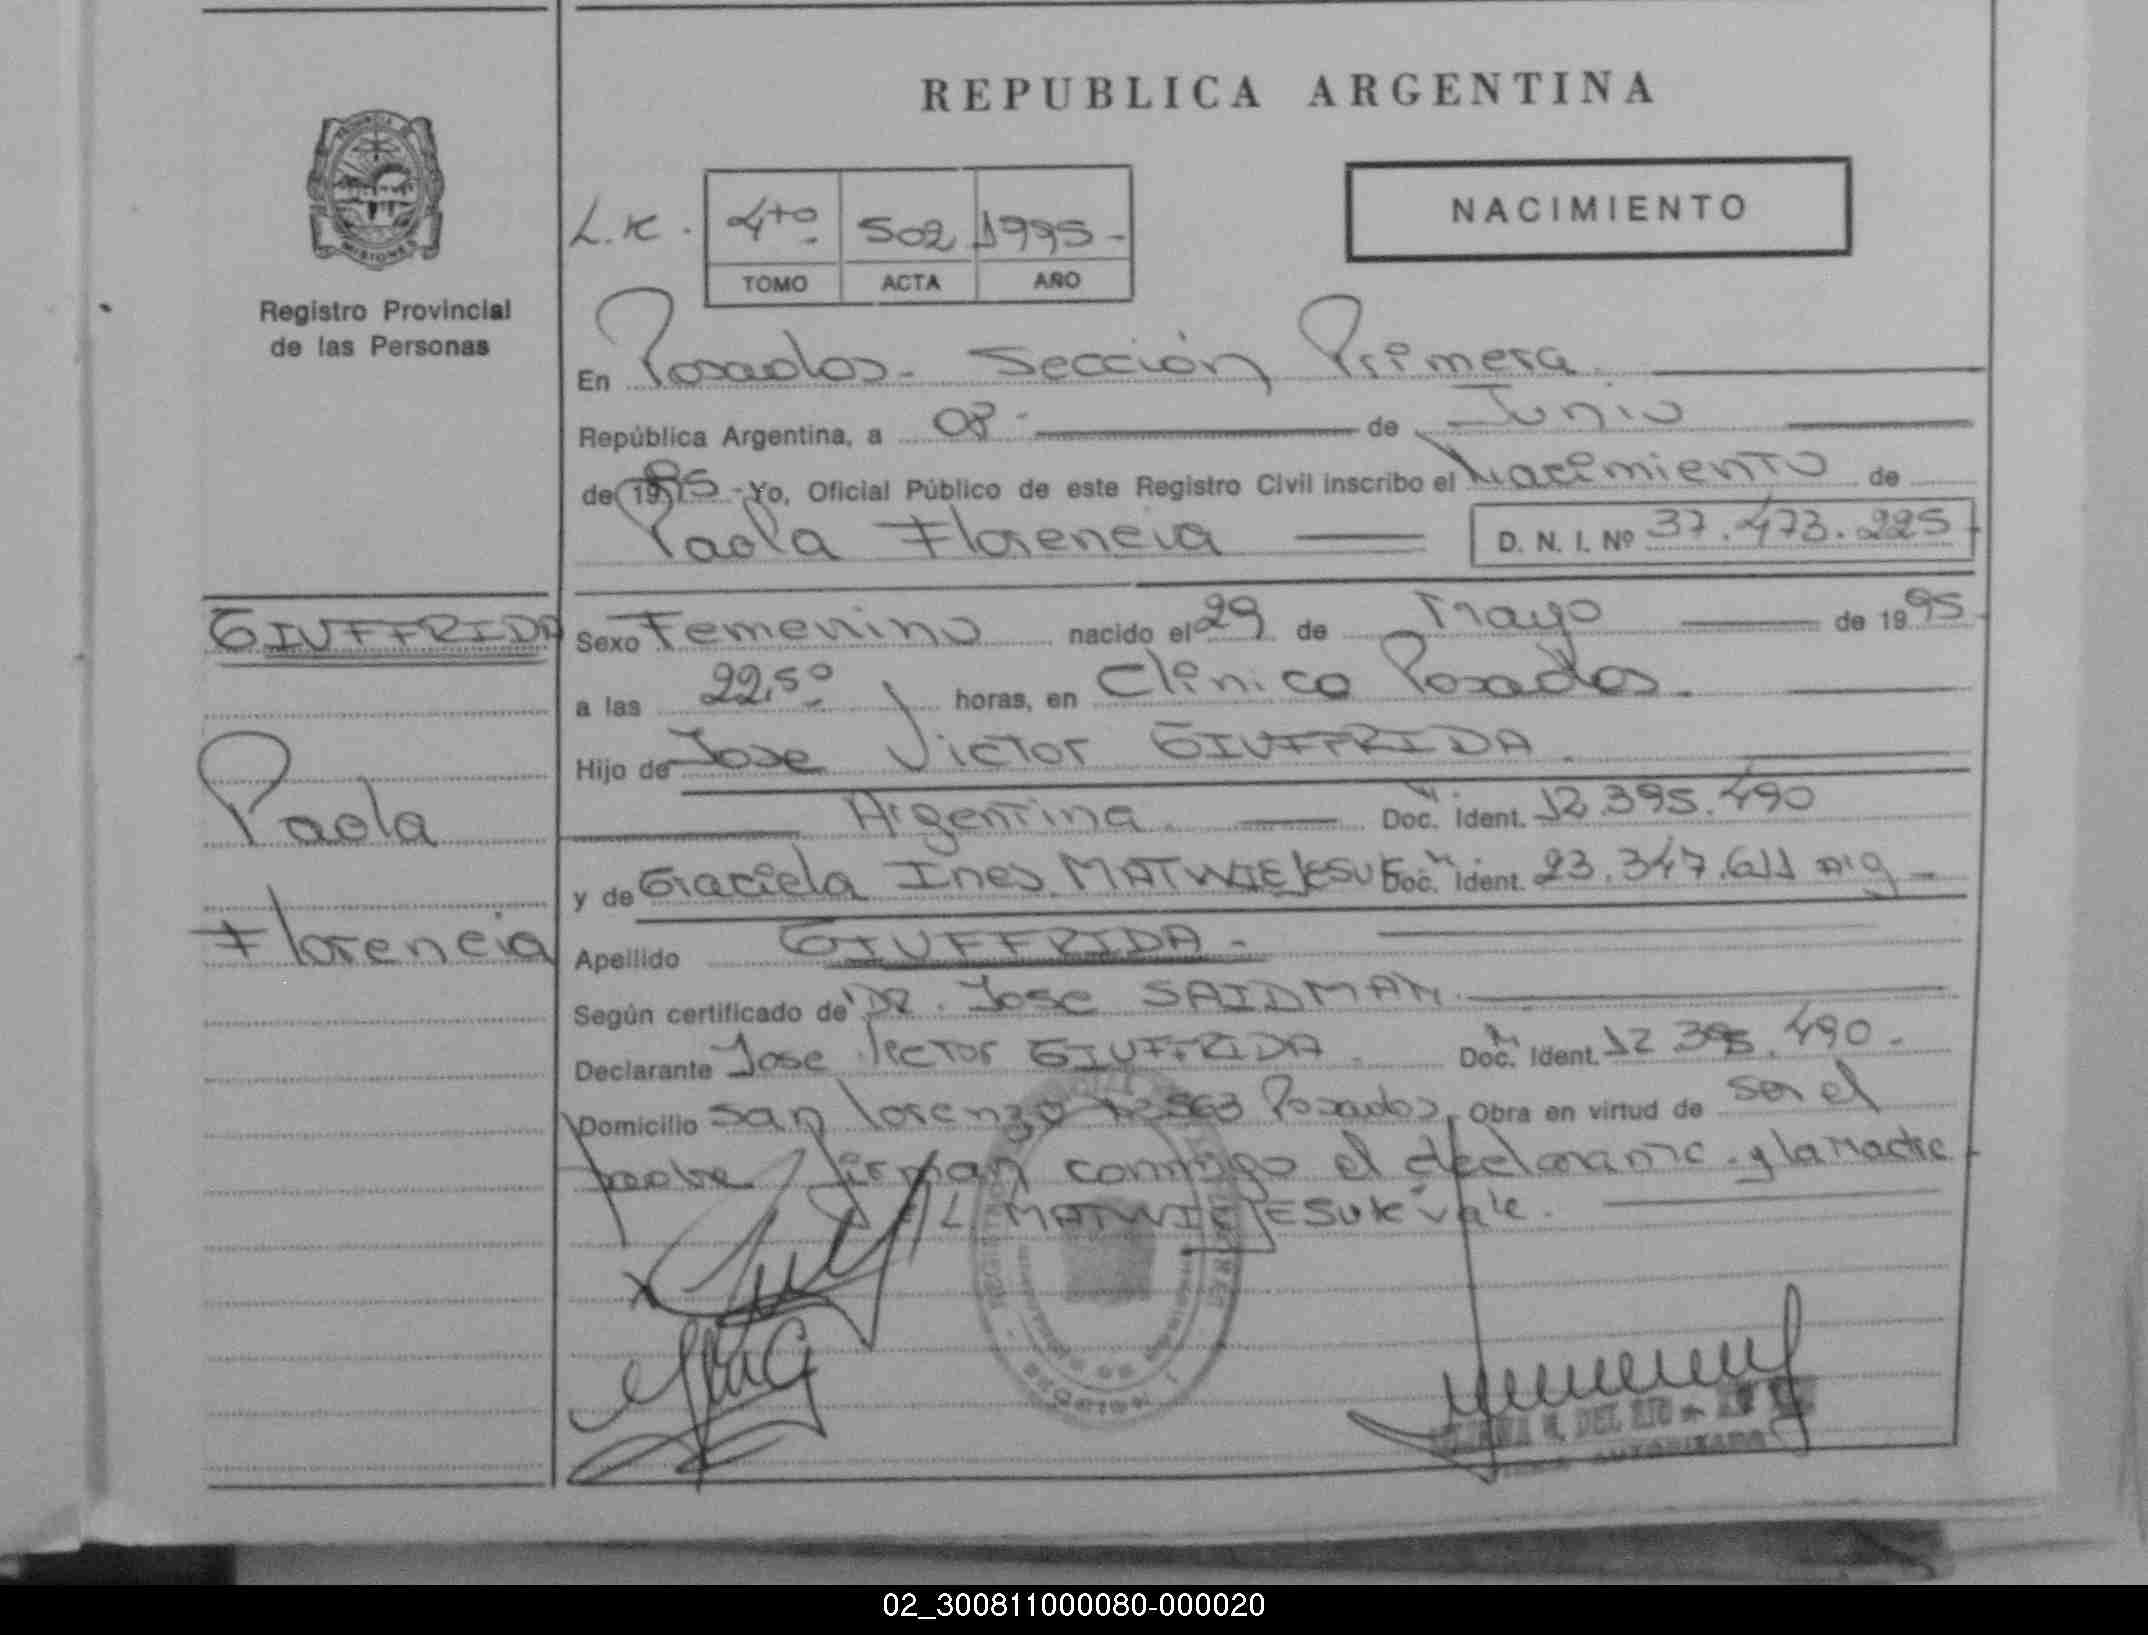 REPUBLICA ARGENTINA
NACIMIENTO
L.K. 4to 502 1995-
TOMO ACTA AÑO
Registro Provincial
de las Personas
En Posadas- Sección Primera
República Argentina, a 08- de Junio
de 1995- Yo, Oficial Público de este Registro Civil inscribo el Nacimiento de
Paola Florencia D. N. I. Nº 37.473.225
GIUFFRIDA
Paola
Florencia
Sexo Femenino nacido el 29 de Mayo de 1995
a las 22,50 horas, en Clínica Posadas.
Hijo de Jose Victor GIUFFRIDA
Argentina Doc. Ident. 12.395.490
y de Graciela Ines MATWIEJESUK Doc. Ident. 23.347.611 Arg-
Apellido GIUFFRIDA-
Según certificado de DR. Jose SAIDMAN
Declarante Jose Victor GIUFFRIDA Doc. Ident. 12.395.490-
Domicilio San Lorenzo Posadas, Obra en virtud de ser el
padre firman conmigo el declarante y la Madre
E/L. MATWIEJESUK vale.
DEL RIO
02_300811000080-000020